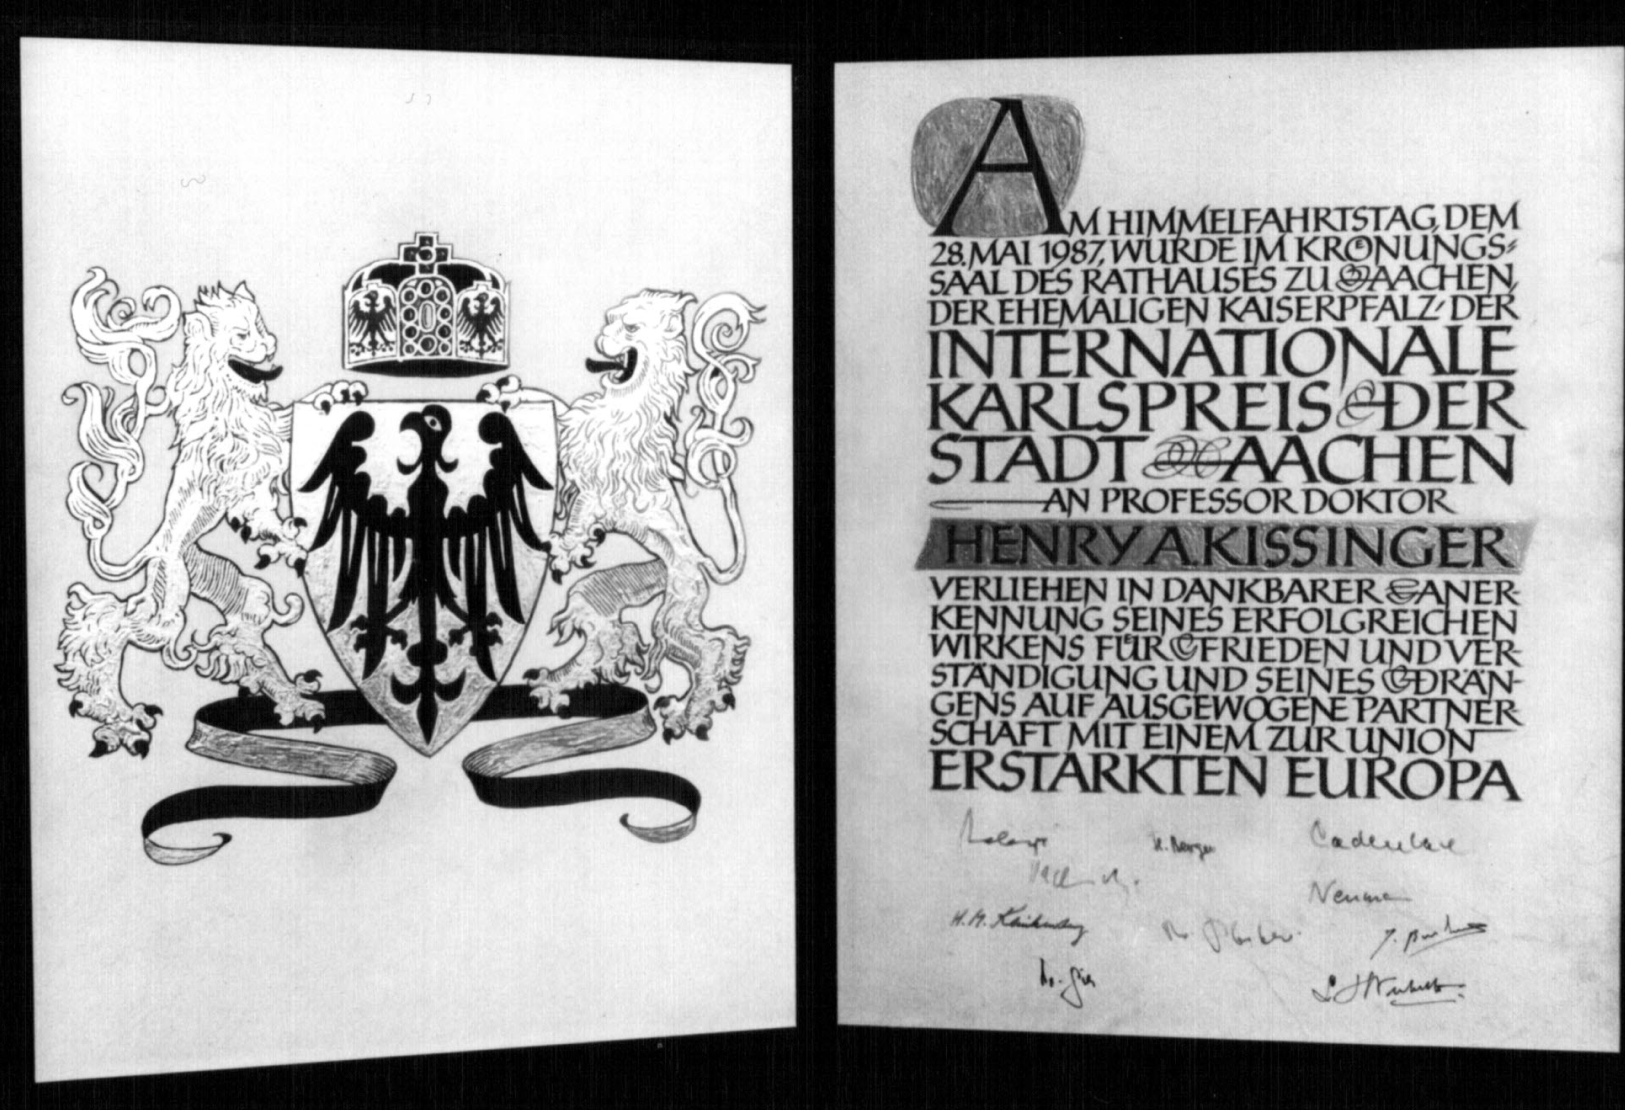 AM HIMMELFAHRTSTAG, DEM
28. MAI 1987, WURDE IM KRÖNUNGS-
SAAL DES RATHAUSES ZU AACHEN,
DER EHEMALIGEN KAISERPFALZ, DER
INTERNATIONALE
KARLSPREIS DER
STADT AACHEN
AN PROFESSOR DOKTOR
HENRY A. KISSINGER
VERLIEHEN IN DANKBARER ANER-
KENNUNG SEINES ERFOLGREICHEN
WIRKENS FÜR FRIEDEN UND VER-
STÄNDIGUNG UND SEINES DRÄN-
GENS AUF AUSGEWOGENE PARTNER-
SCHAFT MIT EINEM ZUR UNION
ERSTARKTEN EUROPA